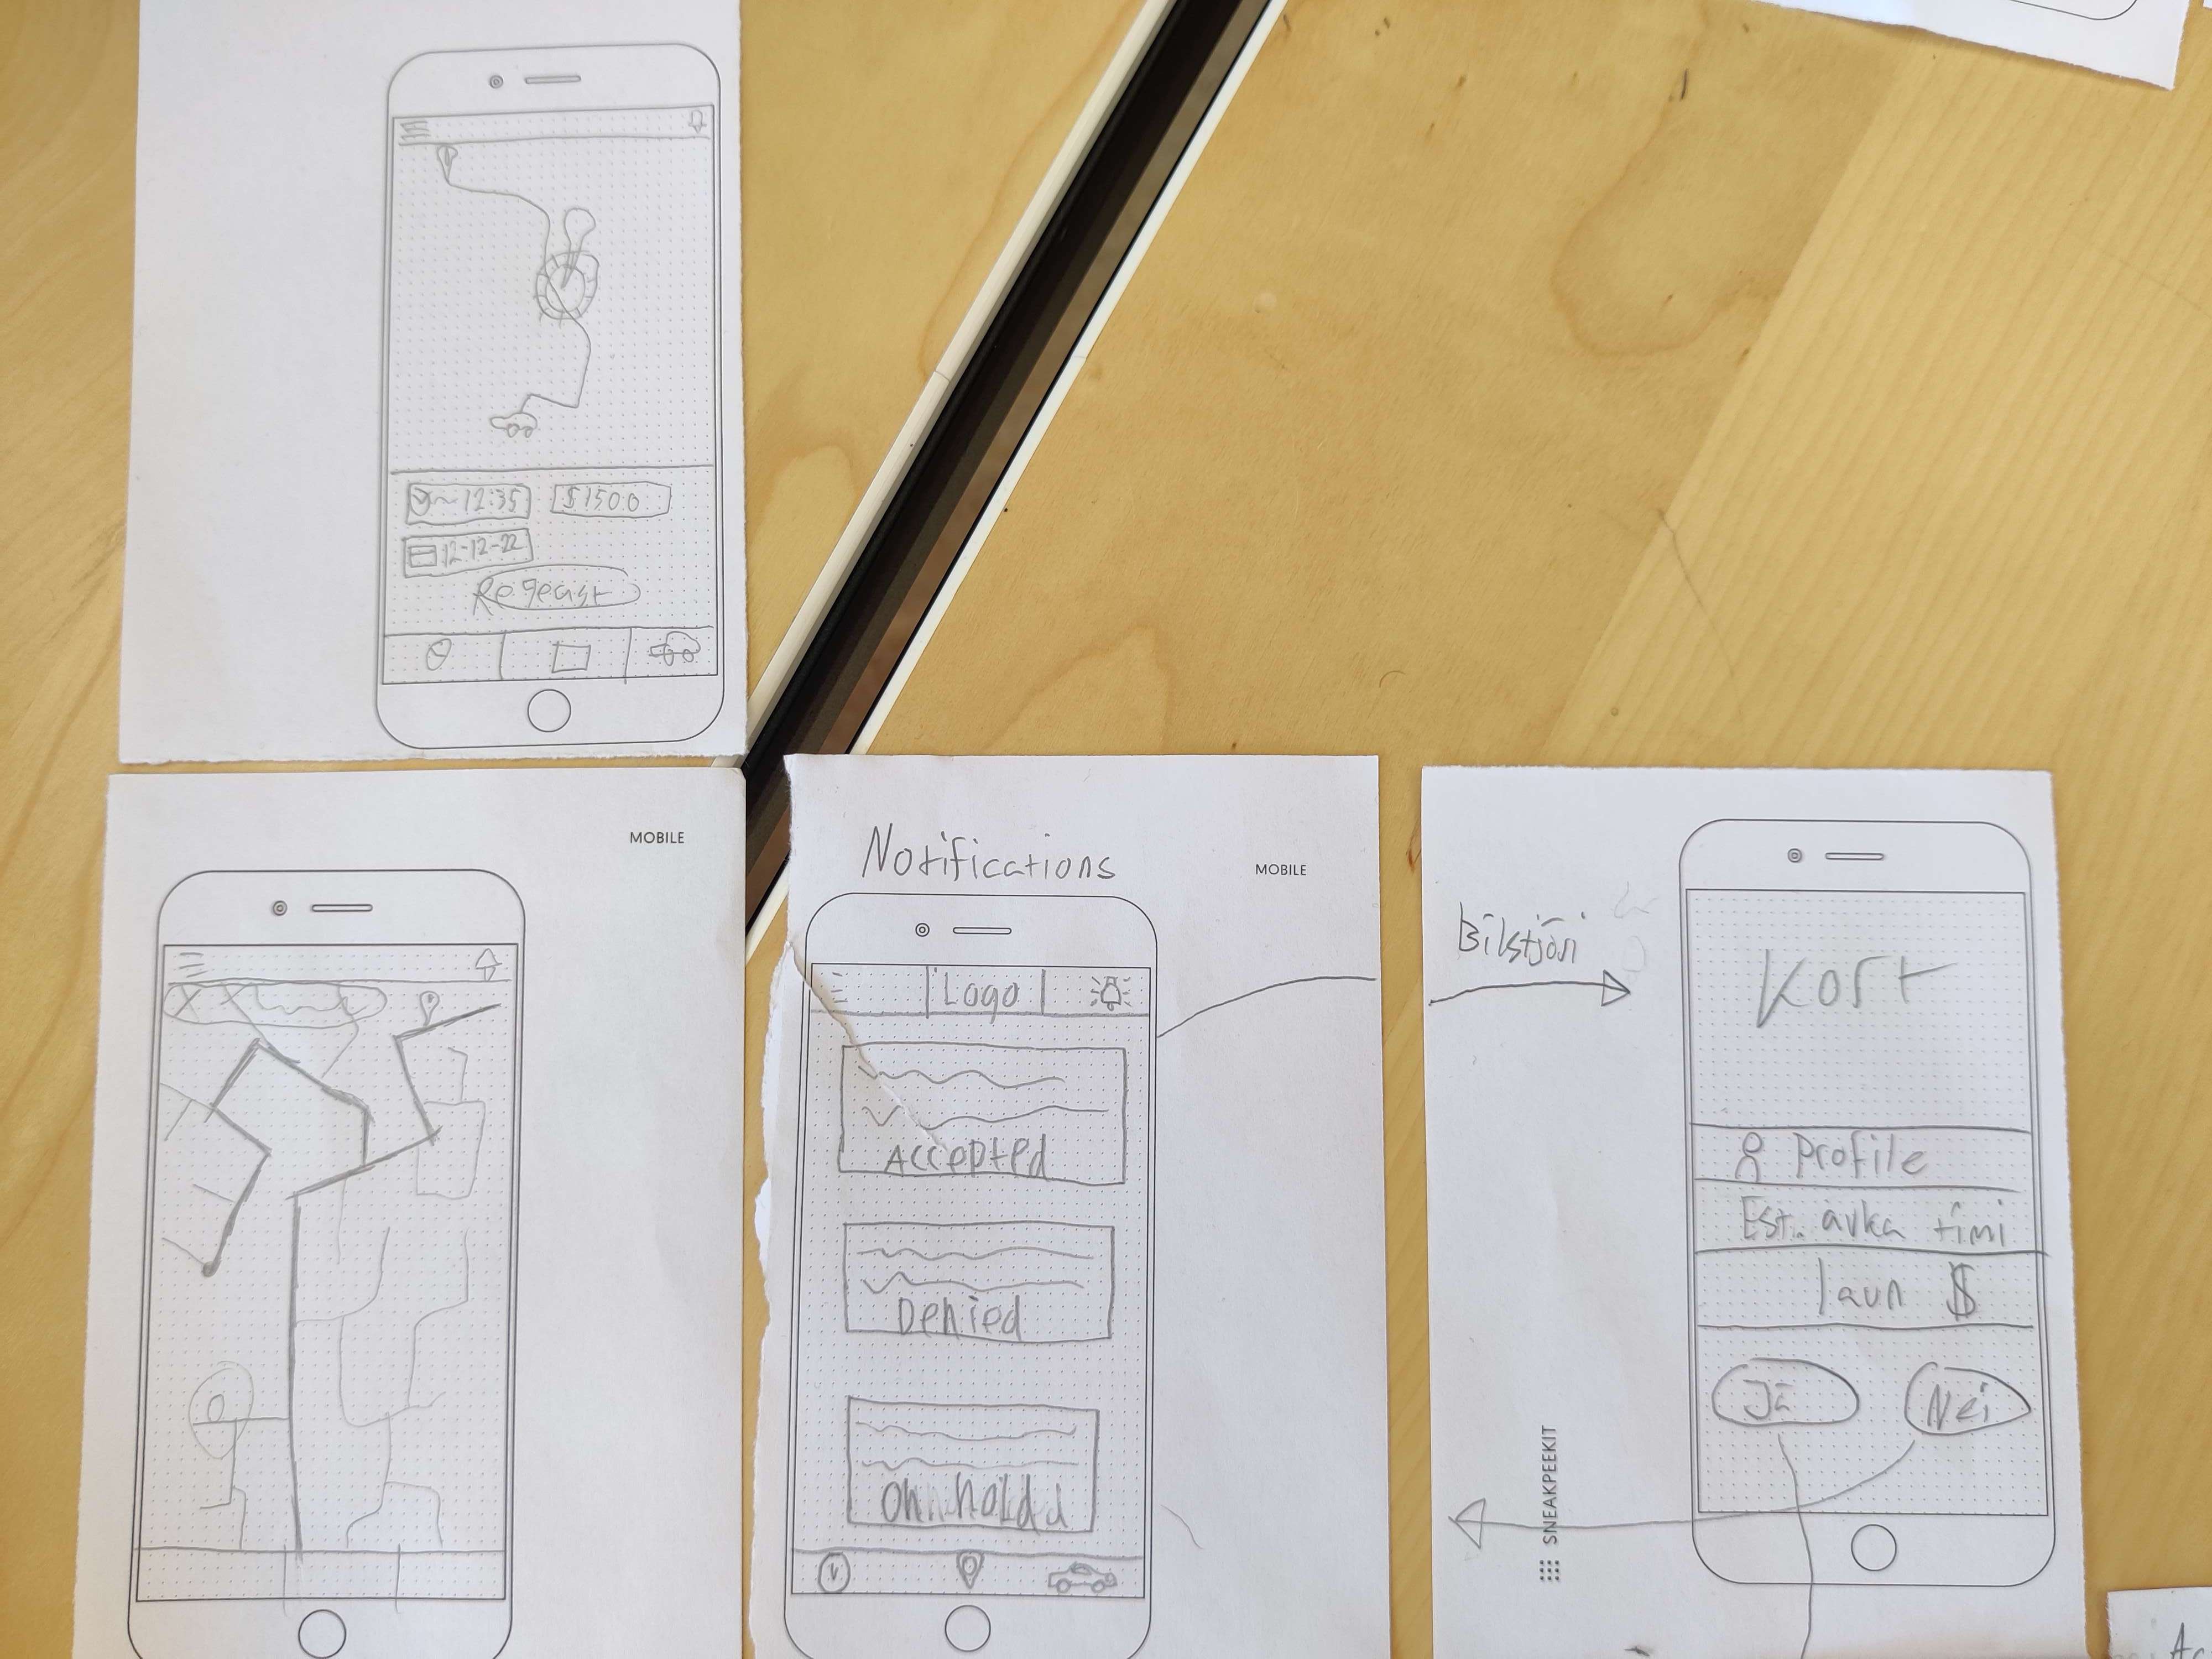 ~12:35
$1500
12-12-22
MOBILE
Notifications
MOBILE
Logo
Accepted
Denied
On hold
Bílstjóri
Kort
Profile
Est. avka tími
laun $
Já
Nei
SNEAKPEEKIT